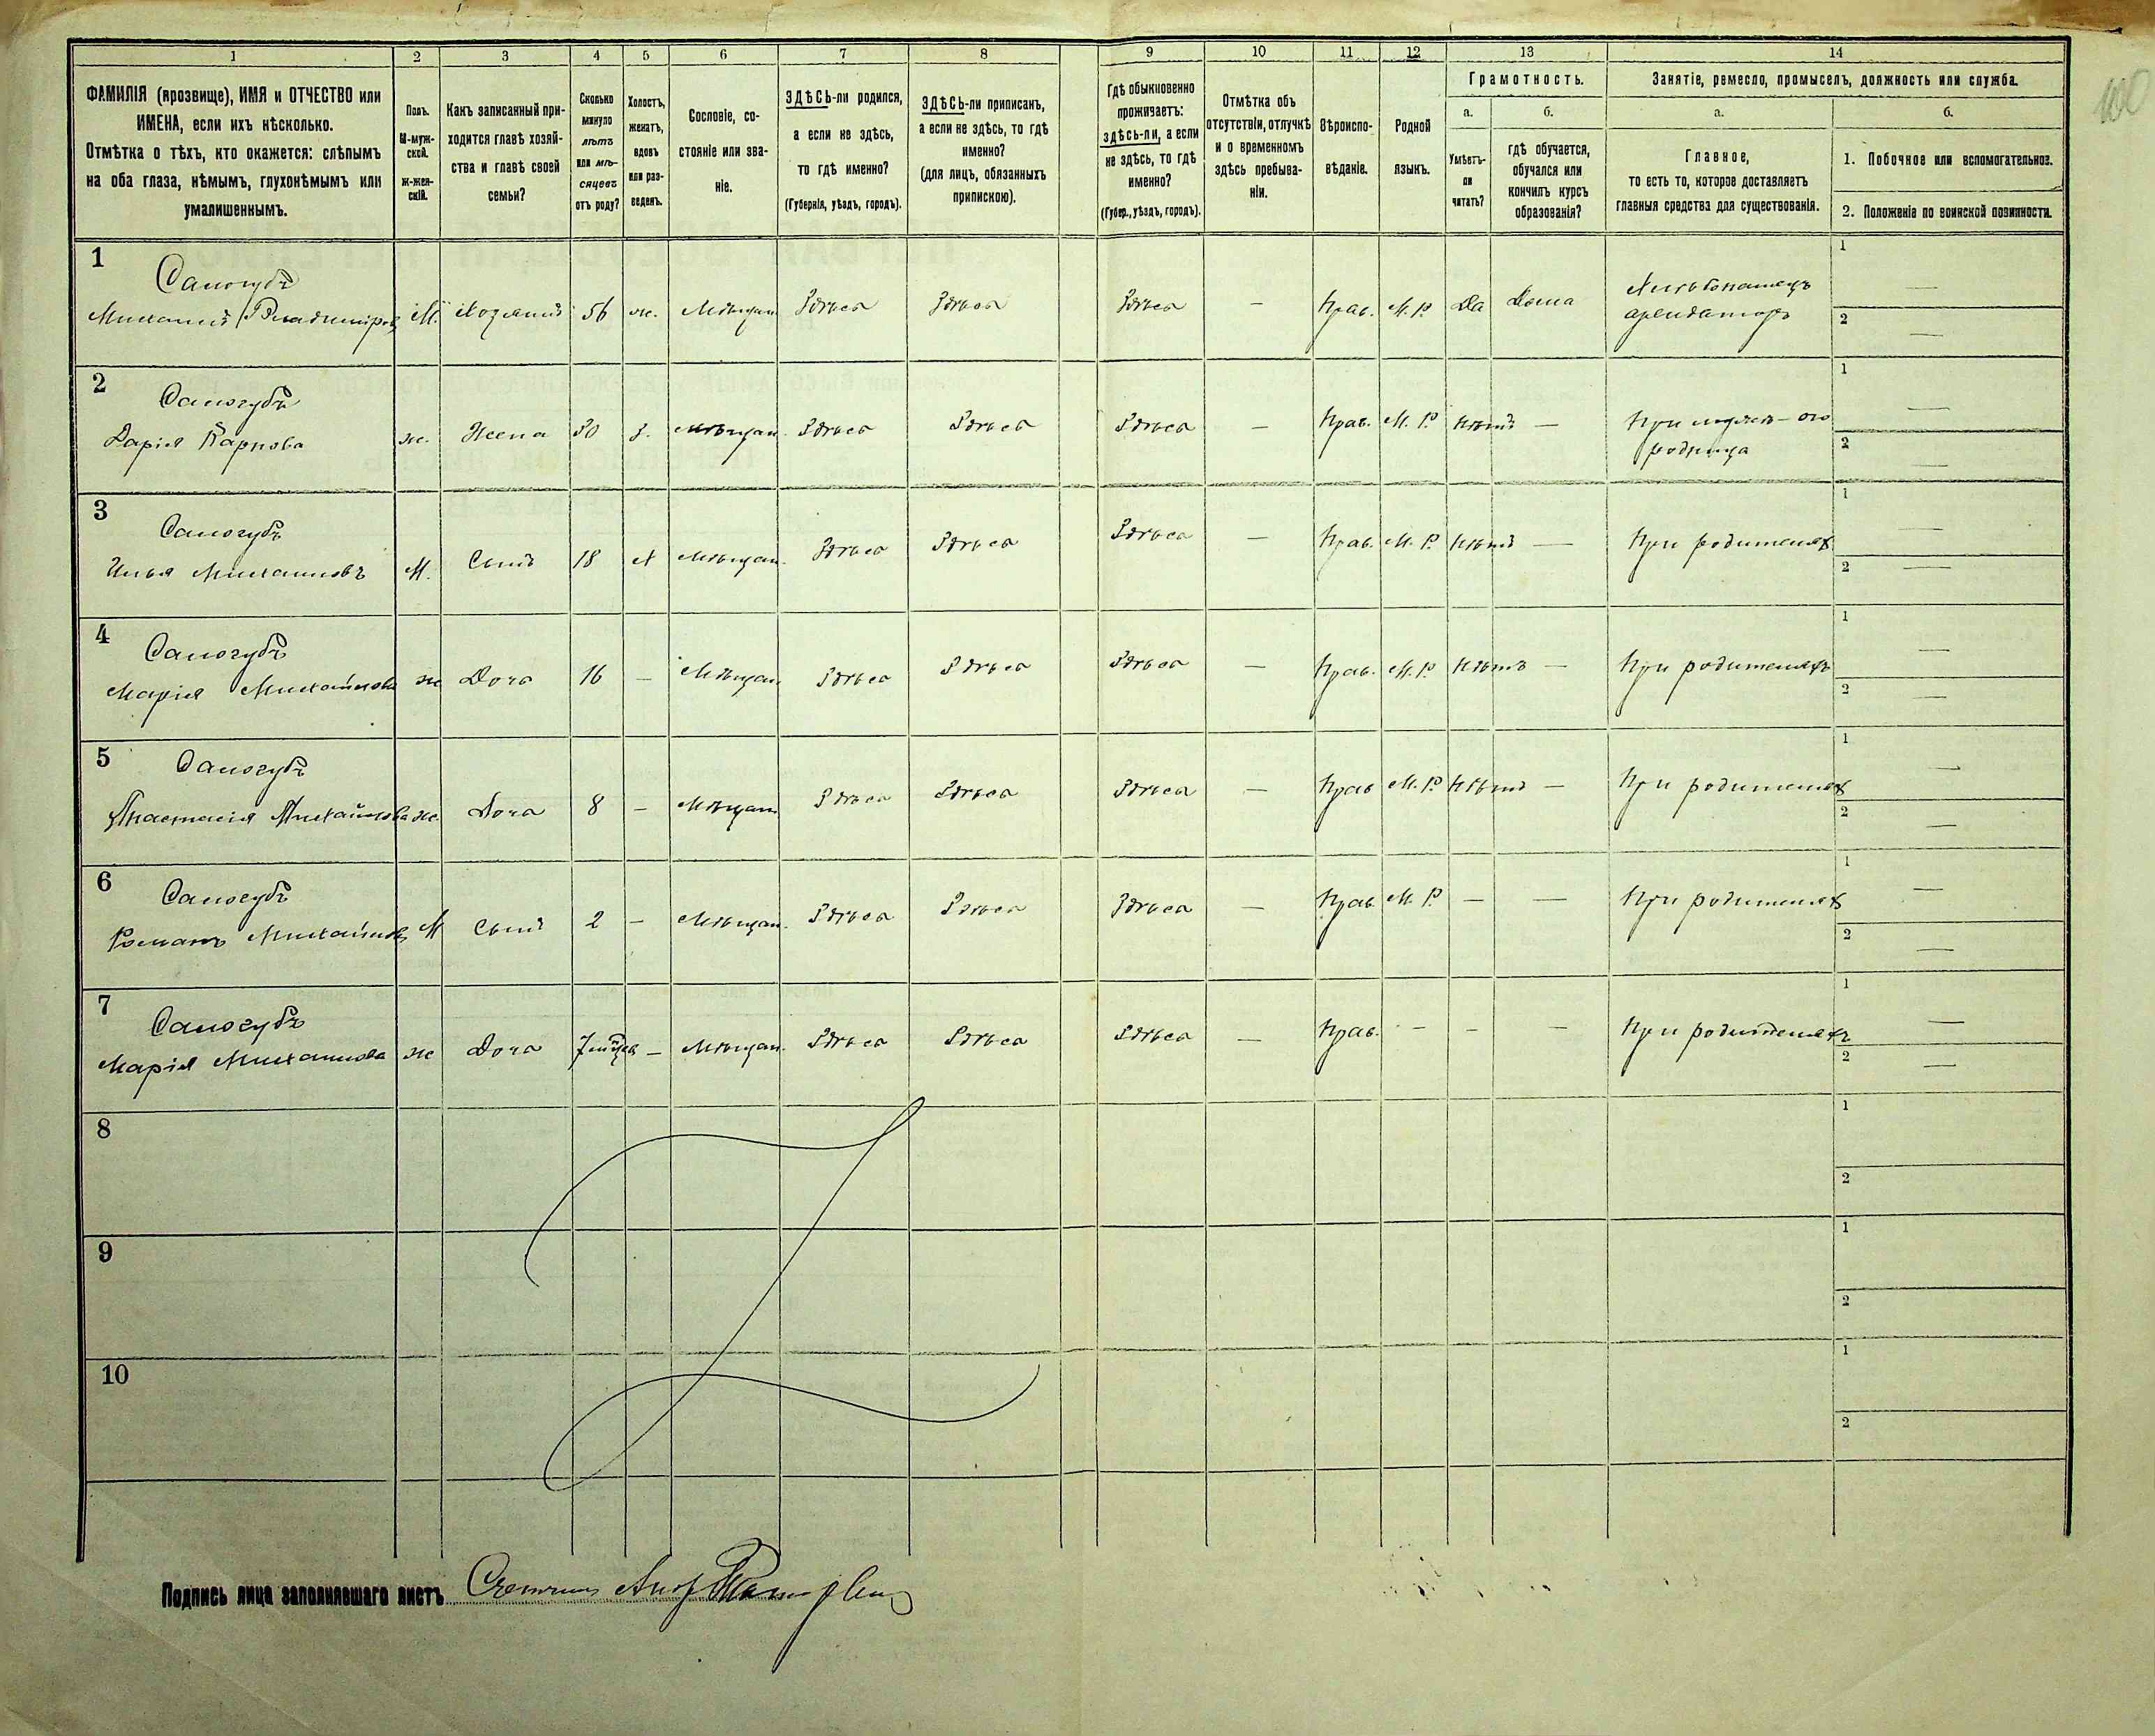 1 2 3 4 5 6 7 8 9 10 11 12 13 14
ФАМИЛІЯ (прозвище), ИМЯ и ОТЧЕСТВО или
ИМЕНА, если ихъ нѣсколько.
Отмѣтка о тѣхъ, кто окажется: слѣпымъ
на оба глаза, нѣмымъ, глухонѣмымъ или
умалишеннымъ.
Полъ.
М-муж-
ской.
Ж-жен-
скій.
Какъ записанный при-
ходится главѣ хозяй-
ства и главѣ своей
семьи?
Сколько
минуло
лѣтъ
или мѣ-
сяцевъ
отъ роду?
Холостъ,
женатъ,
вдовъ
или раз-
веденъ.
Сословіе, со-
стояніе или зва-
ніе.
ЗДѢСЬ-ли родился,
а если не здѣсь,
то гдѣ именно?
(Губернія, уѣздъ, городъ).
ЗДѢСЬ-ли приписанъ,
а если не здѣсь, то гдѣ
именно?
(для лицъ, обязанныхъ
припискою).
Гдѣ обыкновенно
проживаетъ:
здѣсь-ли, а если
не здѣсь, то гдѣ
именно?
(Губер., уѣздъ, городъ).
Отмѣтка объ
отсутствіи, отлучкѣ
и о временномъ
здѣсь пребыва-
ніи.
Вѣроиспо-
вѣданіе.
Родной
языкъ.
Грамотность.
а.
Умѣетъ-
ли
читать?
б.
гдѣ обучается,
обучался или
кончилъ курсъ
образованія?
Занятіе, ремесло, промыселъ, должность или служба.
а.
Главное,
то есть то, которое доставляетъ
главныя средства для существованія.
б.
1. Побочное или вспомогательное.
2. Положеніе по воинской повинности.
1
Самогубъ
Михаилъ Владиміровъ М. Хозяинъ 56 ж. Мѣщан. Здѣсь Здѣсь Здѣсь — Прав. М.Р. Да Дома
Хлѣбопашецъ
арендаторъ
1 —
2 —
2
Самогубъ
Дарія Карпова ж. Жена 30 З. Мѣщан. Здѣсь Здѣсь Здѣсь — Прав. М.Р. Нѣтъ —
1 —
2 —
3
Самогубъ
Илья Михаиловъ М. Сынъ 18 Х Мѣщан. Здѣсь Здѣсь Здѣсь — Прав. М.Р. Нѣтъ — При родителях
1 —
2 —
4
Самогубъ
Марія Михайлова ж Дочь 16 — Мѣщан. Здѣсь Здѣсь Здѣсь — Прав. М.Р. Нѣтъ — При родителяхъ
1 —
2 —
5
Самогубъ
Анастасія Михайлова ж. Дочь 8 — Мѣщан Здѣсь Здѣсь Здѣсь — Прав М.Р. Нѣтъ — При родителях
1 —
2 —
6
Самогубъ
Романъ Михайлов М Сынъ 2 — Мѣщан. Здѣсь Здѣсь Здѣсь — Прав М.Р. — — При родителях
1 —
2 —
7
Самогубъ
Марія Михаилова ж Дочь 7 — Мѣщан. Здѣсь Здѣсь Здѣсь — Прав. — — — При родителяхъ
1 —
2 —
8
1
2
9
1
2
10
1
2
Подпись лица заполнявшаго листъ
100